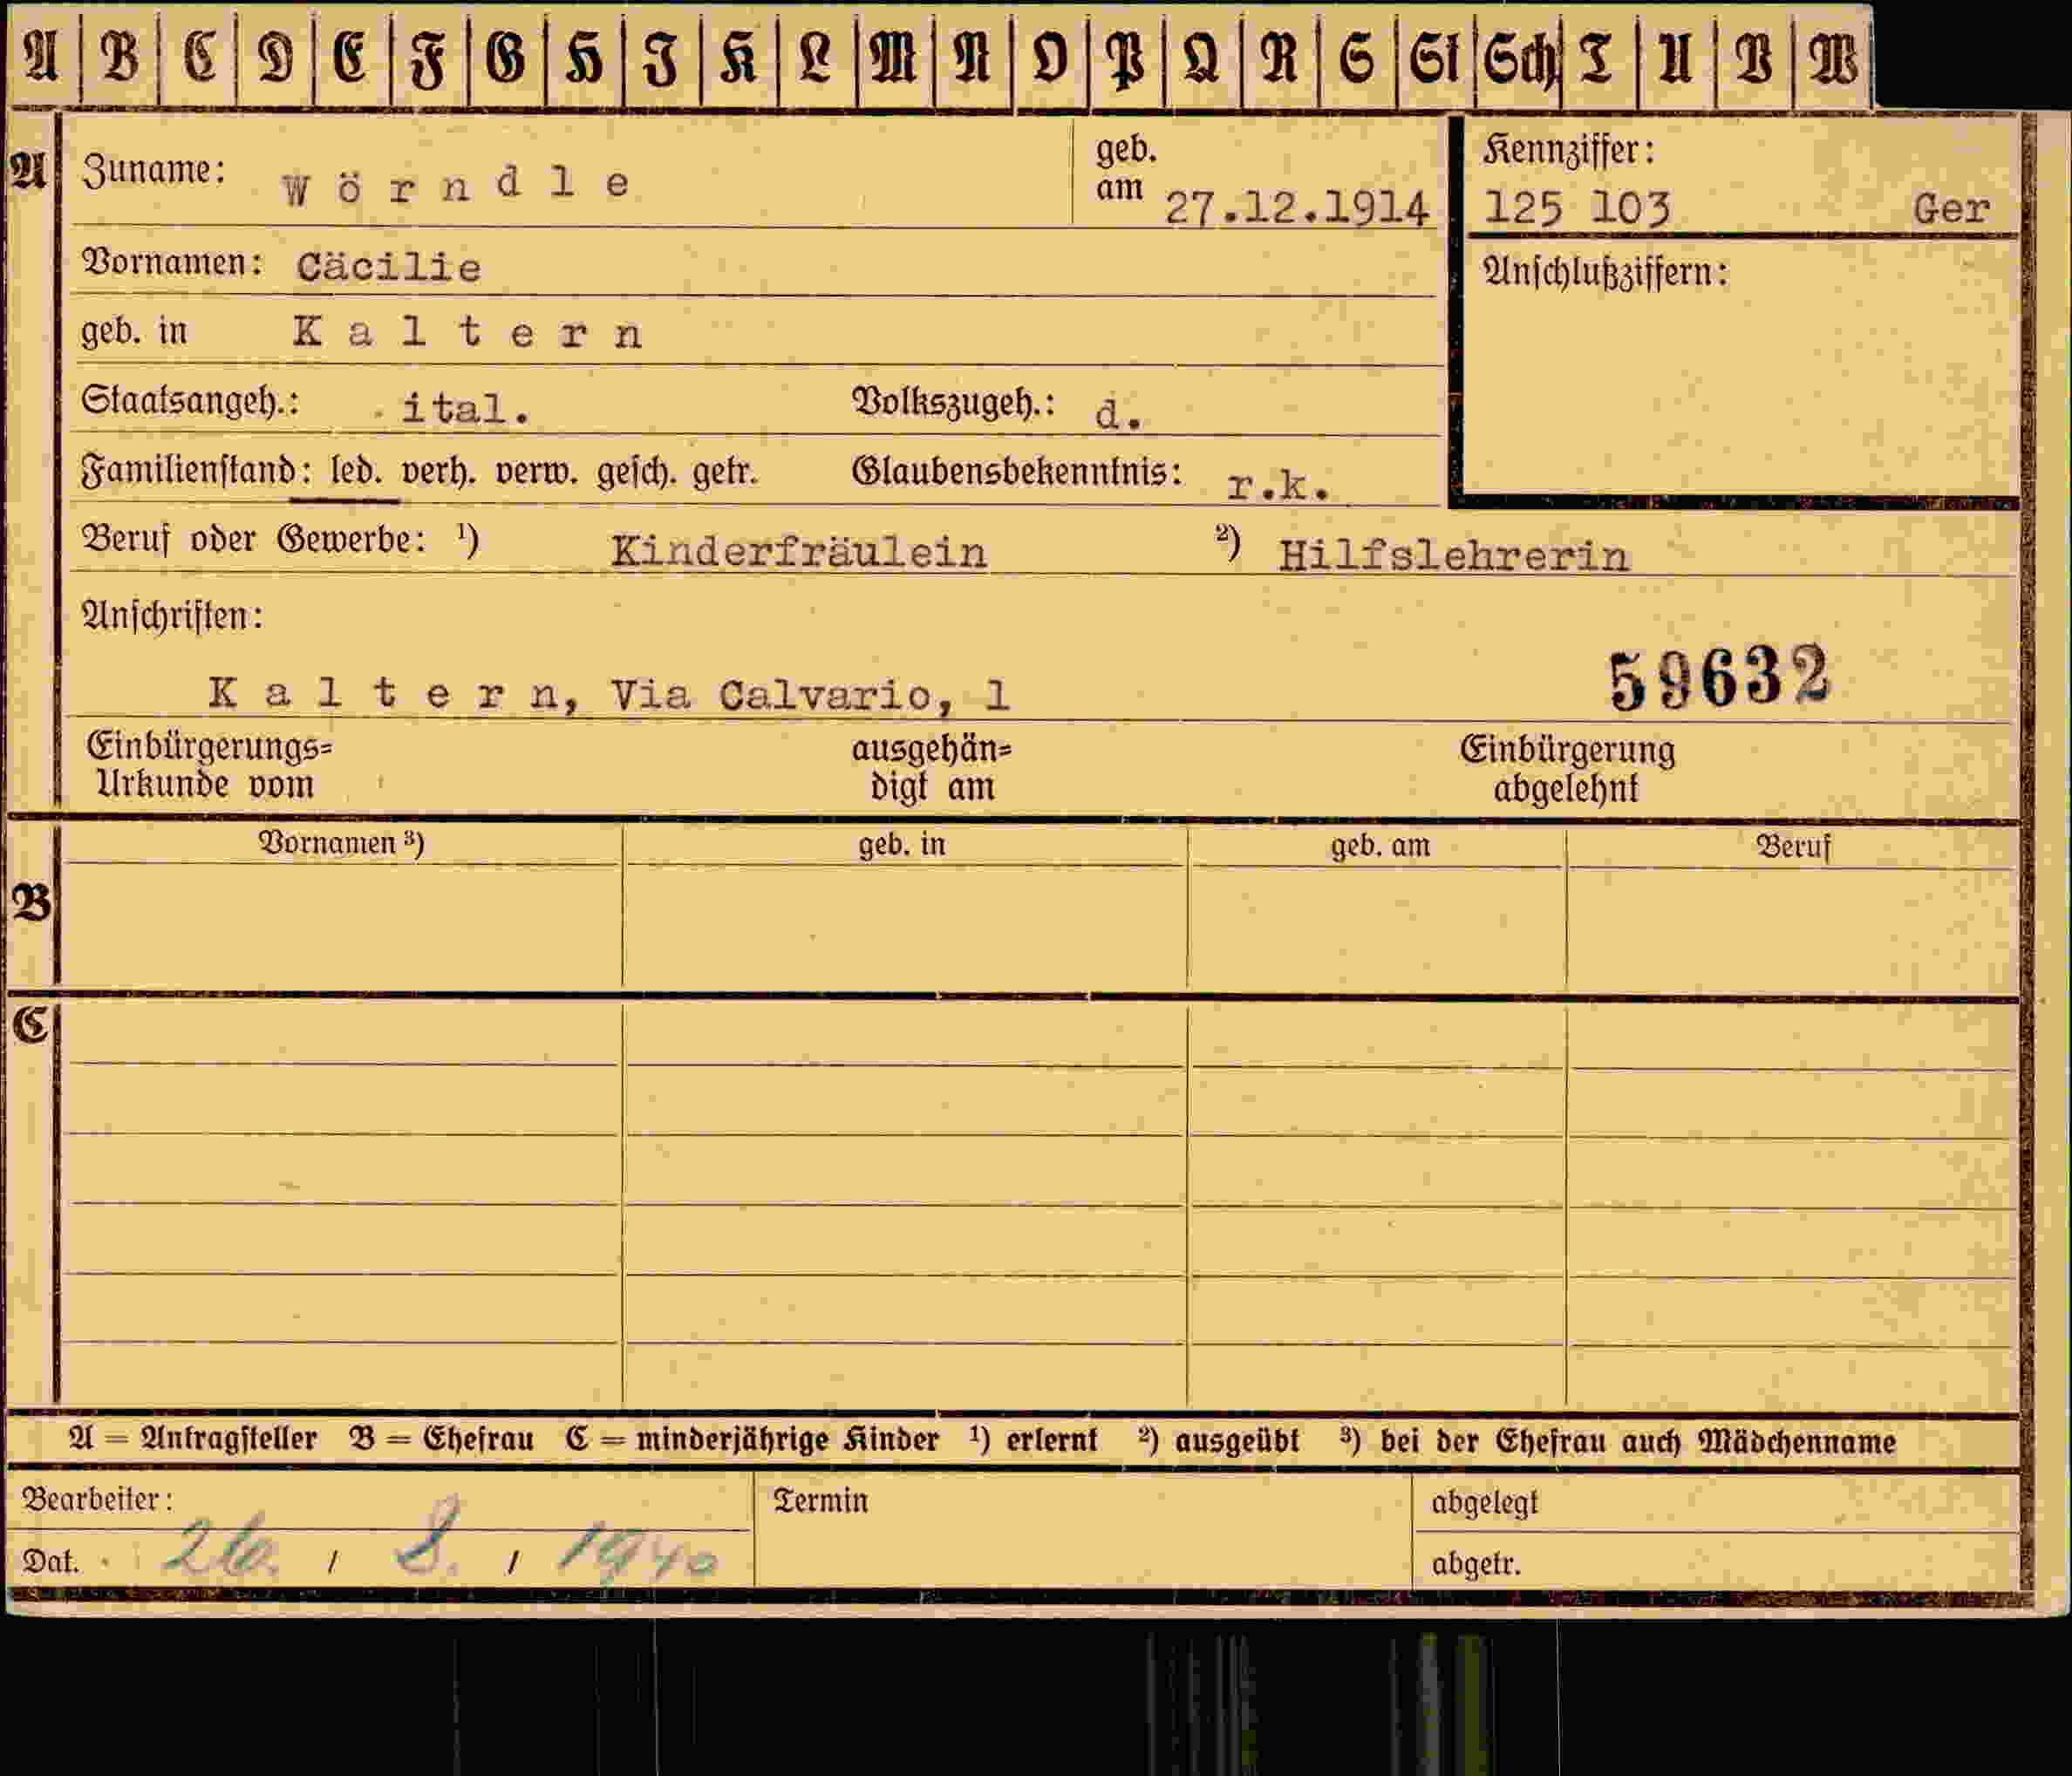 A B C D E F G H I K L M N O P Q R S St Sch T U V W
A Zuname: Wörndle geb. am 27.12.1914 Kennziffer: 125 103 Ger
Vornamen: Cäcilie Anschlußziffern:
geb. in Kaltern
Staatsangeh.: ital. Volkszugeh.: d.
Familienstand: led. verh. verw. gesch. getr. Glaubensbekenntnis: r.k.
Beruf oder Gewerbe: ¹) Kinderfräulein ²) Hilfslehrerin
Anschriften:
59632
Kaltern, Via Calvario, 1
Einbürgerungs= ausgehän= Einbürgerung
Urkunde vom digt am abgelehnt
Vornamen ³) geb. in geb. am Beruf
B
C
A = Antragsteller B = Ehefrau C = minderjährige Kinder ¹) erlernt ²) ausgeübt ³) bei der Ehefrau auch Mädchenname
Bearbeiter: Termin abgelegt
Dat. 26. / 8. / 1940 abgetr.